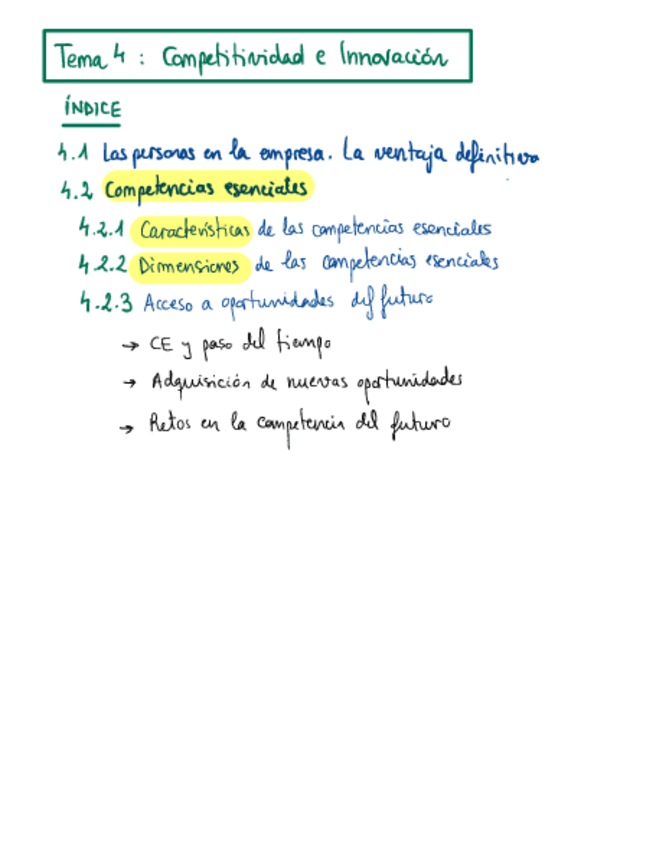 Tema 4 : Competitividad e Innovación
ÍNDICE
4.1 Las personas en la empresa. La ventaja definitiva
4.2 Competencias esenciales
4.2.1 Características de las competencias esenciales
4.2.2 Dimensiones de las competencias esenciales
4.2.3 Acceso a oportunidades del futuro
→ CE y paso del tiempo
→ Adquisición de nuevas oportunidades
→ Retos en la competencia del futuro